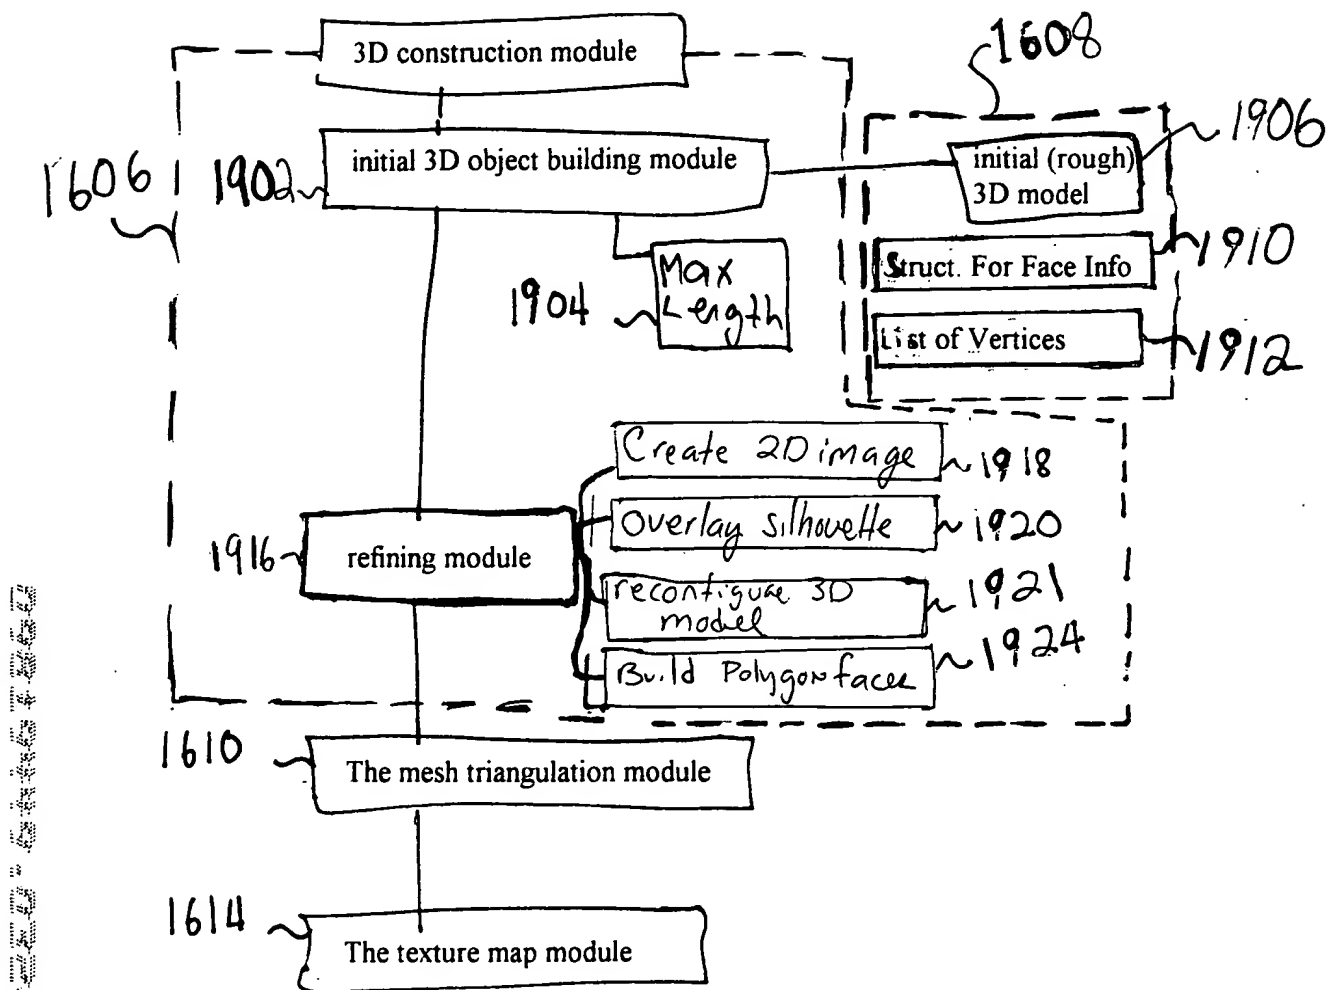 3D construction module
1608
1606
1902
initial 3D object building module
initial (rough)
3D model
1906
Struct. For Face Info
1910
Max
Length
1904
List of Vertices
1912
Create 2D image
1918
Overlay silhouette
1920
1916
refining module
reconfigure 3D
model
1921
Build Polygon faces
1924
1610
The mesh triangulation module
1614
The texture map module